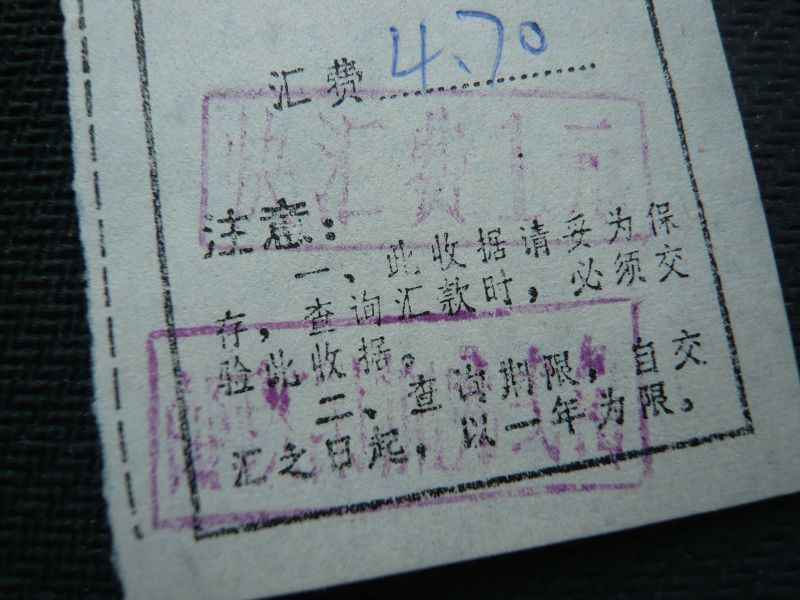 汇费 4.70
快汇费1元
注意：
一、此收据请妥为保
存，查询汇款时，必须交
验此收据。
二、查询期限，自交
汇之日起，以一年为限。